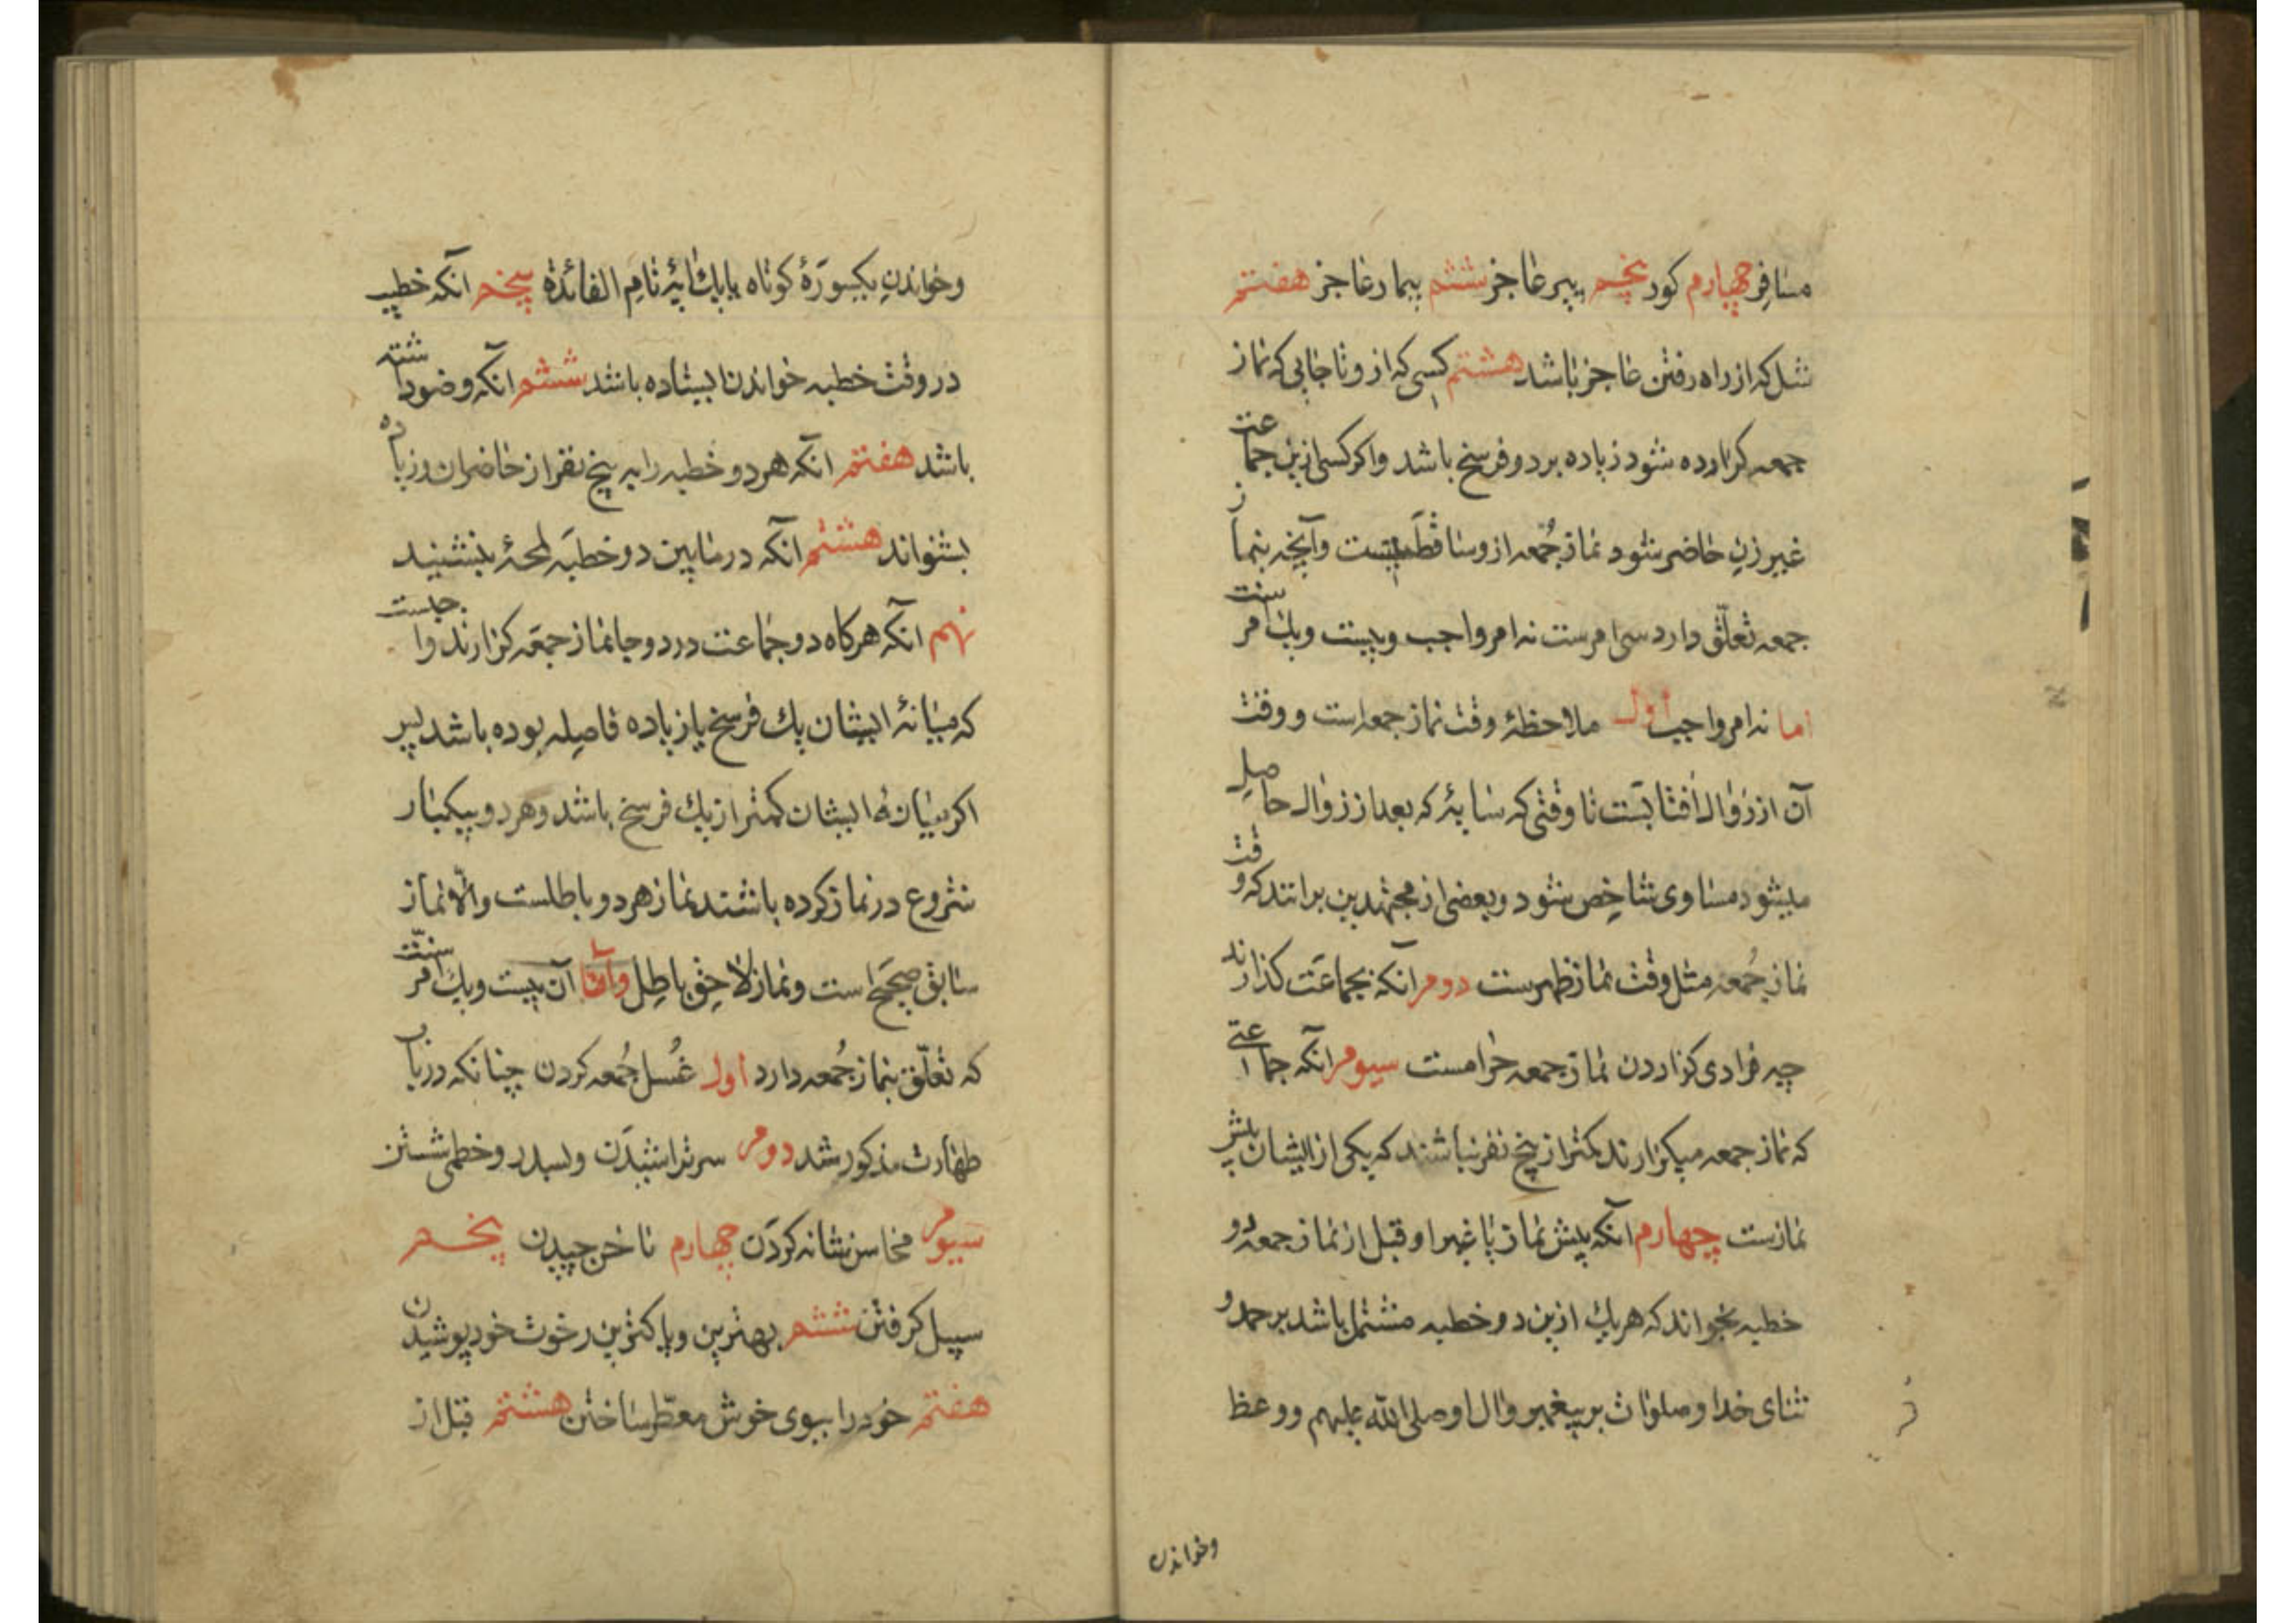 مسافر چهارم کور پنجم پیر عاجز ششم بیمار عاجز هفتم
شل که از راه رفتن عاجز باشد هشتم کسی که از و تا جایی که نماز
جمعه کزارده شود زیاده بر دو فرسخ باشد واکر کسی ازین جماعت
غیر زن حاضر شود نماز جمعه ازو ساقط نیست وآنچه بنماز
جمعه تعلّق دارد سی امرست نه امر واجب وبیست ویك امر سنت
اما نه امر واجب اول ملاحظهٔ وقت نماز جمعه است ووقت
آن از زوال افتابست تا وقتی که سایهٔ که بعد از زوال حاصل
میشود مساوی شاخص شود وبعضی از مجتهدین برانند که وقت
نماز جمعه مثل وقت نماز ظهرست دوم آنکه بجماعت کذارند
چه فرادی کزاردن نماز جمعه حرامست سیوم آنکه جماعتی
که نماز جمعه میکزارند کمتر از پنج نفر نباشند که یکی از ایشان پیش
نمازست چهارم آنکه پیش نماز یا غیر او قبل از نماز جمعه دو
خطبه بخواند که هریك ازین دو خطبه مشتمل باشد بر حمد و
ثنای خدا وصلوات بر پیغمبر وال او صلی الله علیهم ووعظ
وخواندن
وخواندن یکسورهٔ کوتاه یا یك ایهٔ تام الفائدة پنجم آنکه خطیب
در وقت خطبه خواندن ایستاده باشد ششم آنکه وضو داشته
باشد هفتم آنکه هر دو خطبه را به پنج نفر از حاضران وزیاده
بشنواند هشتم آنکه در مابین دو خطبه لمحهٔ بنشیند
نهم آنکه هرکاه دو جماعت در دو جا نماز جمعه کزارند واجبست
که میانهٔ ایشان یك فرسخ یا زیاده فاصله بوده باشد پس
اکر میانهٔ ایشان کمتر از یك فرسخ باشد وهر دو بیکبار
شروع در نماز کرده باشند نماز هر دو باطلست والّا نماز
سابق صحیح است ونماز لاحق باطل وامّا آن بیست ویك امر سنّت
که تعلّق بنماز جمعه دارد اول غسل جمعه کردن چنانکه در باب
طهارت مذکور شد دوم سر تراشیدن وبسدر وخطمی شستن
سیوم محاسن شانه کردن چهارم ناخن چیدن پنجم
سبیل کرفتن ششم بهترین وپاکترین رخوت خود پوشیدن
هفتم خود را ببوی خوش معطّر ساختن هشتم قبل از